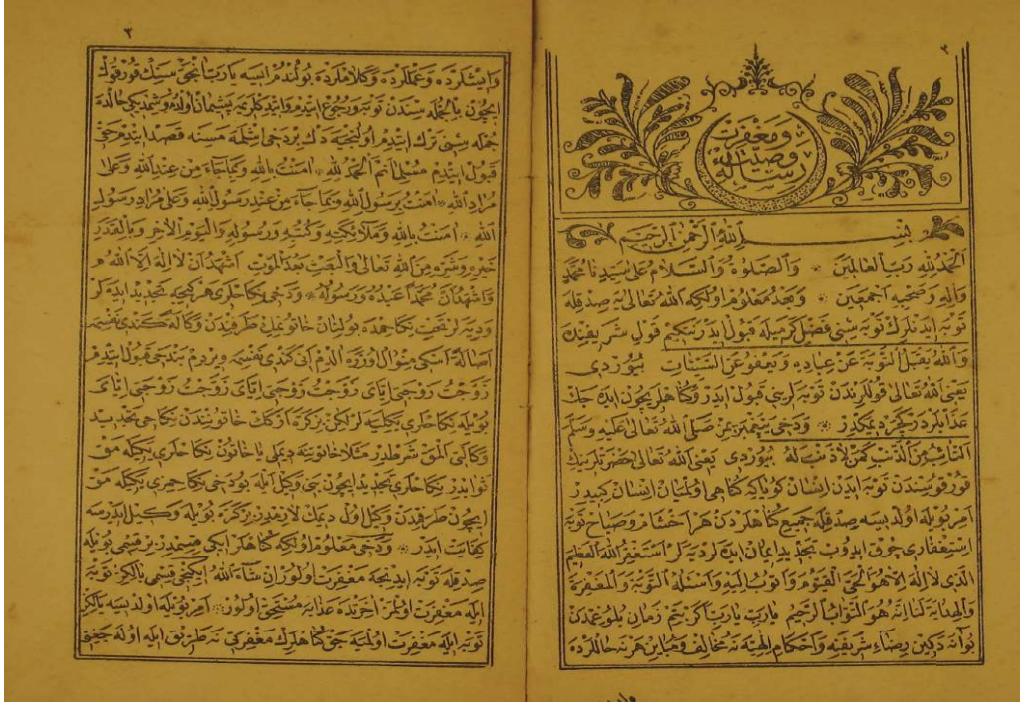 ٢
ومغفرت
وصيت
رسالهٔ
بسم الله الرحمن الرحيم
الحمد لله رب العالمين والصلوة والسلام على سيدنا محمد
وآله وصحبه اجمعين وبعد معلوم اولكه الله تعالى يه صدقله
توبه ايدنلرك توبه سنى فضل كرميله قبول ايدر نتكيم قول شريفنده
والله يقبل التوبة عن عباده ويعفو عن السيئات بيوردى
يعنى الله تعالى قوللرندن توبه لرينى قبول ايدر وكناهلر ايچون ايده جك
عذابلردن كچر ديمكدر ودخى پيغمبريمز صلى الله تعالى عليه وسلم
التائب من الذنب كمن لا ذنب له بيوردى يعنى الله تعالى حضرتلرينك
قورقوسندن توبه ايدن انسان كويا كه كناهى اولميان انسان كبيدر
امر بويله اولديسه صدقله جميع كناهلردن هر اخشام وصباح توبه
استغفارى چوق ايدوب تجديد ايمان ايده لر ديه لر استغفر الله العظيم
الذى لا اله الا هو الحى القيوم واتوب اليه واسئله التوبة والمغفرة
والهداية لنا انه هو التواب الرحيم يا رب يا رب اكر بنم زمان بلوغمدن
بو آنه دكين رضاء شريفنه واحكام الهيه نه مخالف ومباين هر نه حاللرده
٣
وايشلرده وعمللرده وكلاملرده بولندم ايسه يا رب انجق سنك قورقوك
ايچون بالجمله سندن توبه ورجوع ايتدم وايتدكلريمه پشيمان اولدم وشمديكى حالده
جمله سنى ترك ايتدم اولنجيه دك بر دخى ايشلمه مسنه قصد ايتدم حقى
قبول ايتدم مسلمانم الحمد لله امنت بالله وبما جاء من عند الله وعلى
مراد الله امنت برسول الله وبما جاء من عند رسول الله وعلى مراد رسول
الله امنت بالله وملائكته وكتبه ورسوله واليوم الاخر وبالقدر
خيره وشره من الله تعالى والبعث بعد الموت اشهد ان لا اله الا الله
واشهد ان محمدا عبده ورسوله ودخى نكاحلرى هر كيجه تجديد ايده لر
وديه لر تحت نكاحمده بولنان خاتونملك طرفندن وكالة كندى نفسمه
اصالة اسكى منوال اوزره الدم انى كندى نفسمه ويردم بن دخى قبول ايتدم
زوجت زوجتى اياى زوجت زوجتى اياى زوجت زوجتى اياى
بويله نكاحلرى يكيليه لر لكن بزكره اركك خاتونيندن نكاحى تجديد
وكالتى المق شرطدر مثلا خاتوننه ديملى يا خاتون نكاحلرى يكيله مق
ثوابدر نكاحلرى تجديد ايچون بنى وكيل ايله بو دخى نكاحمزى يكيله مق
ايچون طرفمدن وكيل اول ديمك لازمدر بزكره بويله وكيل ايدرسه
كفايت ايدر ودخى معلوم اولكه كناهلر ايكى قسمدر بر قسمى بويله
صدقله توبه ايدنجه مغفرت اولور ان شاء الله ايكنجى قسمى يالكز توبه
ايله مغفرت اولمز اخرتده عذابه مستحق اولور امر بويله اولديسه يالكز
توبه ايله مغفرت اولميه جق كناهلرك مغفرتى نه طريق ايله اوله جغنى